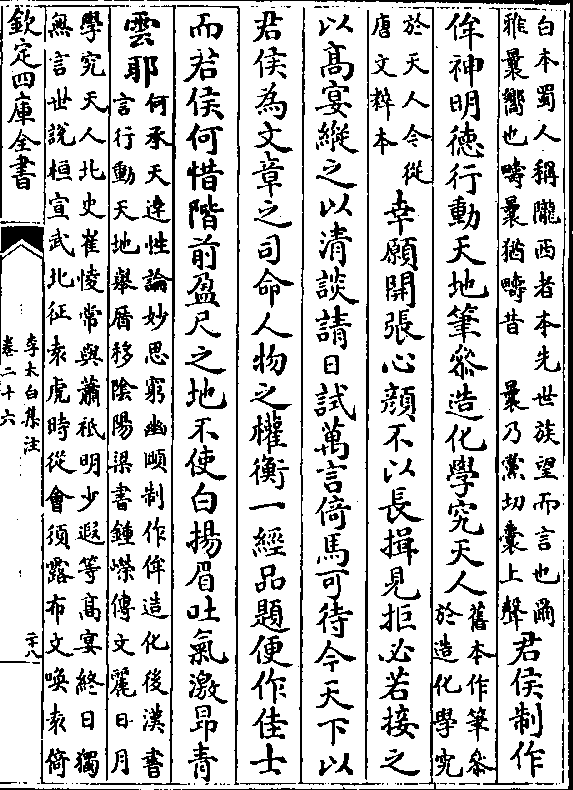 白本蜀人稱隴西者本先世族望而言也爾
雅曩嚮也疇曩猶疇昔　曩乃黨切囊上聲
君侯制作
侔神明徳行動天地筆參造化學究天人
舊本作筆參
於造化學究
於天人今從
唐文粹本
幸願開張心顔不以長揖見拒必若接之
以髙宴縱之以清談請日試萬言倚馬可待今天下以
君侯為文章之司命人物之權衡一經品題便作佳士
而君侯何惜階前盈尺之地不使白揚眉吐氣激昂青
雲耶
何承天達性論妙思窮幽賾制作侔造化後漢書
言行動天地舉厝移陰陽梁書鍾嶸傳文麗日月
學究天人北史崔㥄常與蕭祗明少遐等髙宴終日獨
無言世說桓宣武北征袁虎時從會須露布文喚袁倚
欽定四庫全書
李太白集注
卷二十六
二八